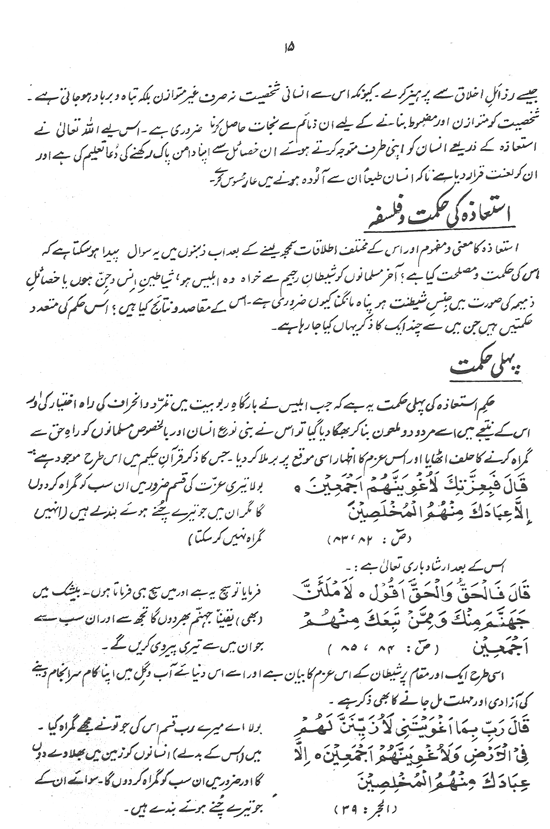 ۱۵
جیسے رذائلِ اخلاق سے پرہیز کرے۔ کیونکہ اس سے انسانی شخصیت نہ صرف غیر متوازن بلکہ تباہ و برباد ہو جاتی ہے۔
شخصیت کو متوازن اور مضبوط بنانے کے لیے ان ذمائم سے نجات حاصل کرنا ضروری ہے۔ اس لیے اللہ تعالیٰ نے
استعاذہ کے ذریعے انسان کو اپنی طرف متوجہ کرتے ہوئے ان خصائل سے اپنا دامن پاک رکھنے کی دُعا تعلیم کی ہے اور
ان کو لعنت قرار دیا ہے تاکہ انسان طبعاً ان سے آلودہ ہونے میں عار محسوس کرے۔
استعاذہ کی حکمت و فلسفہ
استعاذہ کا معنی و مفہوم اور اس کے مختلف اطلاقات سمجھ لینے کے بعد اب ذہنوں میں یہ سوال پیدا ہو سکتا ہے کہ
اس کی حکمت و مصلحت کیا ہے؟ آخر مسلمانوں کو شیطانِ رجیم سے خواہ وہ ابلیس ہو، شیاطینِ انس و جن ہوں یا خصائلِ
ذمیمہ کی صورت میں جنسِ شیطنت ہو پناہ مانگنا کیوں ضروری ہے۔ اس کے مقاصد و نتائج کیا ہیں؟ اس حکم کی متعدد
حکمتیں ہیں جن میں سے چند ایک کا ذکر یہاں کیا جا رہا ہے۔
پہلی حکمت
حکمِ استعاذہ کی پہلی حکمت یہ ہے کہ جب ابلیس نے بارگاہِ ربوبیت میں تمرّد و انحراف کی راہ اختیار کی اور
اس کے نتیجے میں اسے مردود و ملعون بنا کر بھگا دیا گیا تو اس نے بنی نوع انسان اور بالخصوص مسلمانوں کو راہِ حق سے
گمراہ کرنے کا حلف اٹھایا اور اس عزم کا اظہار اسی موقع پر برملا کر دیا۔ جس کا ذکر قرآنِ حکیم میں اس طرح موجود ہے:۔
قَالَ فَبِعِزَّتِكَ لَأُغْوِيَنَّهُمْ أَجْمَعِيْنَ ٥ بولا تیری عزت کی قسم ضرور میں ان سب کو گمراہ کر دوں
إِلَّا عِبَادَكَ مِنْهُمُ الْمُخْلَصِيْنَ گا مگر ان میں جو تیرے چُنے ہوئے بندے ہیں (انہیں
(صٓ : ۸۲، ۸۳) گمراہ نہیں کر سکتا)
اس کے بعد ارشادِ باری تعالیٰ ہے:۔
قَالَ فَالْحَقُّ وَالْحَقَّ أَقُوْلُ ٥ لَأَمْلَئَنَّ فرمایا تو سچ یہ ہے اور میں سچ ہی فرماتا ہوں۔ بیشک میں
جَهَنَّمَ مِنْكَ وَمِمَّنْ تَبِعَكَ مِنْهُمْ (بھی) یقیناً جہنّم بھر دوں گا تجھ سے اور ان سب سے
أَجْمَعِيْنَ (صٓ : ۸۴، ۸۵) جو ان میں سے تیری پیروی کریں گے۔
اسی طرح ایک اور مقام پر شیطان کے اس عزم کا بیان ہے اور اسے اس دنیائے آب و گِل میں اپنا کام سرانجام دینے
کی آزادی اور مہلت مل جانے کا بھی ذکر ہے۔
قَالَ رَبِّ بِمَا أَغْوَيْتَنِي لَأُزَيِّنَنَّ لَهُمْ بولا اے میرے رب قسم اس کی جو تو نے مجھے گمراہ کیا۔
فِي الْأَرْضِ وَلَأُغْوِيَنَّهُمْ أَجْمَعِيْنَ ٥ إِلَّا میں (اس کے بدلے) انسانوں کو زمین میں بھلاوے دوں
عِبَادَكَ مِنْهُمُ الْمُخْلَصِيْنَ گا اور ضرور میں ان سب کو گمراہ کر دوں گا۔ سوائے ان کے
(الحجر : ۳۹) جو تیرے چُنے ہوئے بندے ہیں۔